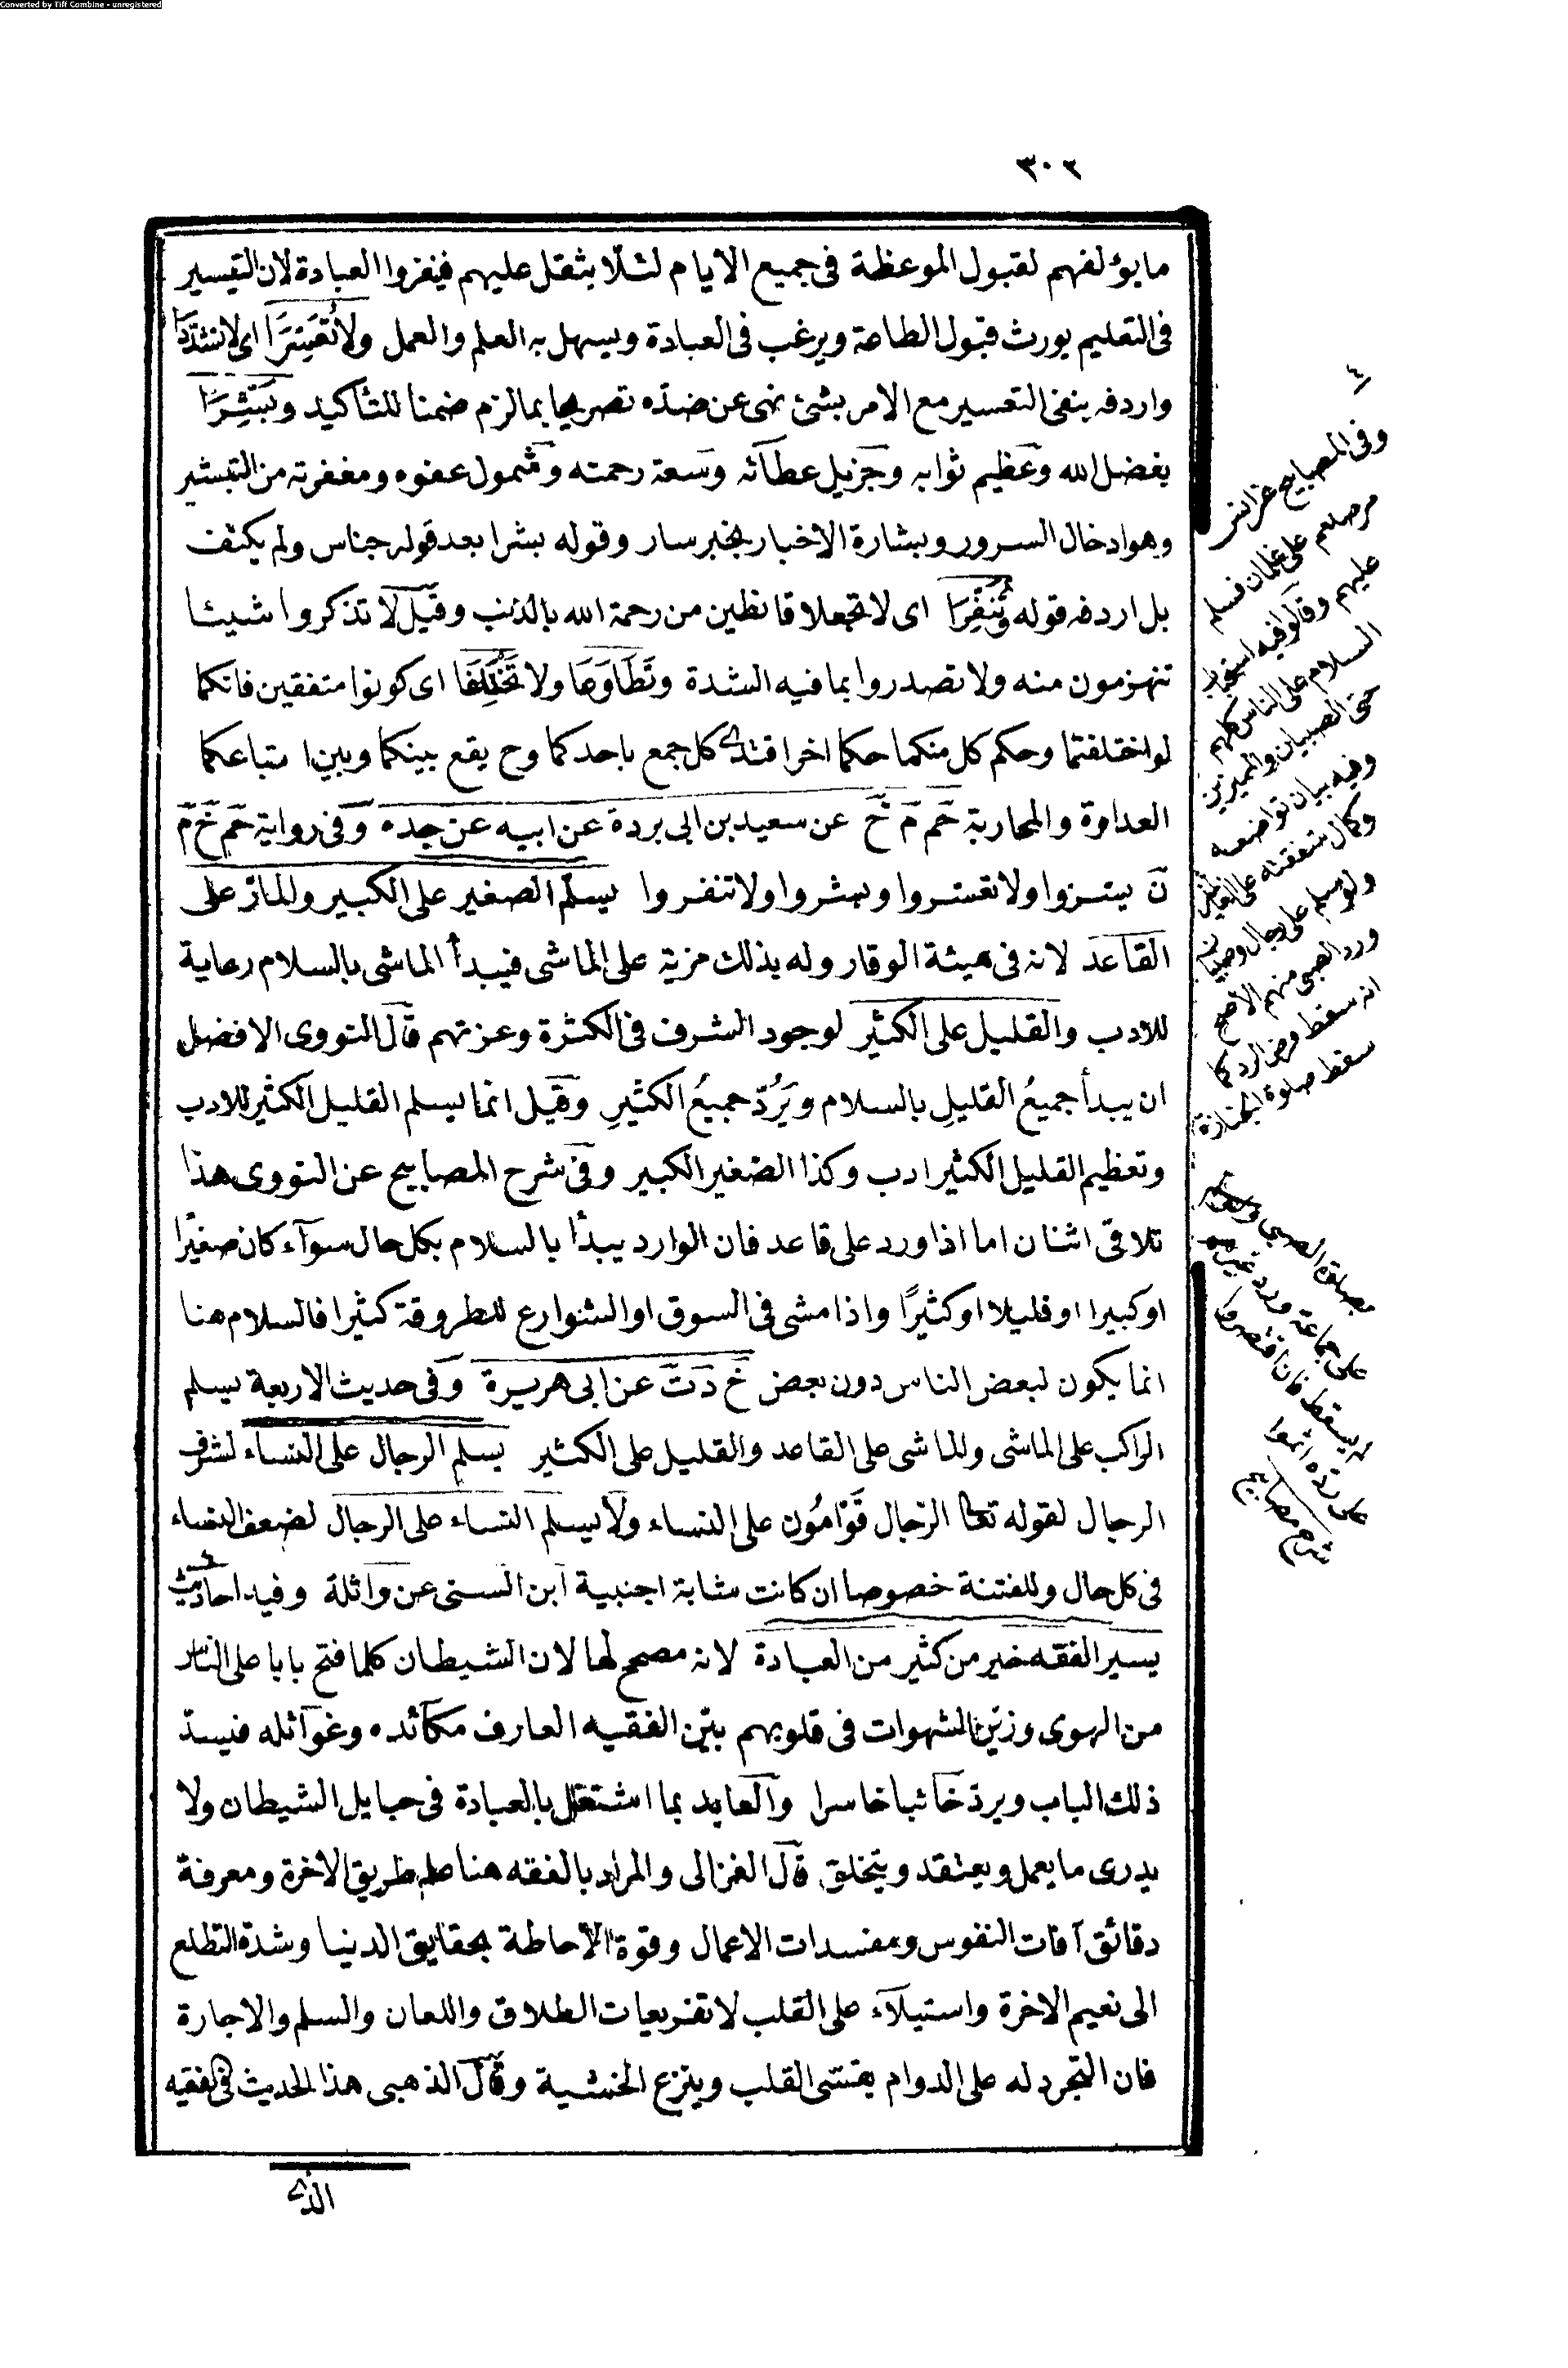 Converted by Tiff Combine - unregistered
٣٠٢
ما يؤلفهم لقبول الموعظة فى جميع الايام لئلا يثقل عليهم فينفروا العبادة لان التيسير
فى التعليم يورث قبول الطاعة ويرغب فى العبادة ويسهل به العلم والعمل ولا تُعَسِّرَا اى لا تشددا
واردفه بنفى التعسير مع الامر بشئ نهى عن ضده تصريحا بما لزم ضمنا للتأكيد وبَشِّرَا
بفضل الله وعظيم ثوابه وجزيل عطائه وسعة رحمته وشمول عفوه ومغفرته من التبشير
وهو ادخال السرور وبشارة الاخبار بخبر سار وقوله بشرا بعد قوله جناس ولم يكتف
بل اردفه قوله وتُنَفِّرَا اى لا تجعلا قانطين من رحمة الله بالذنب وقيل لا تذكروا شيئا
تنهزمون منه ولا تصدروا بما فيه الشدة وتَطَاوَعَا ولا تَخْتَلِفَا اى كونوا متفقين فانكما
لو اختلفتما وحكم كل منكما حكما اخر اقتدى كل جمع باحدكما وح يقع بينكما وبين اتباعكما
العداوة والمحاربة حَم مَ خَ عن سعيد بن ابى بردة عن ابيه عن جده وفى رواية حَم خَ مَ
نَ يسروا ولا تعسروا وبشروا ولا تنفروا يسلم الصغير على الكبير والمارّ على
القاعد لانه فى هيئة الوقار وله بذلك مزية على الماشى فيبدأ الماشى بالسلام رعاية
للادب والقليل على الكثير لوجود الشرف فى الكثرة وعزتهم قال النووى الافضل
ان يبدأ جميعُ القليلِ بالسلام ويَرُدّ جميعُ الكثيرِ وقيل انما يسلم القليل الكثير للادب
وتعظيم القليل الكثير ادب وكذا الصغير الكبير وفى شرح المصابيح عن النووى هذا
تلاقى اثنان اما اذا ورد على قاعد فان الوارد يبدأ بالسلام بكل حال سوآء كان صغيرًا
او كبيرا او قليلا او كثيرًا واذا مشى فى السوق او الشوارع المطروقة كثيرا فالسلام هنا
انما يكون لبعض الناس دون بعض خَ دَ تَ عن ابى هريرة وفى حديث الاربعة يسلم
الراكب على الماشى والماشى على القاعد والقليل على الكثير يسلم الرجال على النساء لشرف
الرجال لقوله تعا الرجال قَوَّامُون على النساء ولا يسلم النساء على الرجال لضعف النساء
فى كل حال وللفتنة خصوصا ان كانت شابة اجنبية ابن السنى عن واثلة وفيه احاديث
يسير الفقه خير من كثير من العبادة لانه مصحح لها لان الشيطان كلما فتح بابا على الناس
من الهوى وزين الشهوات فى قلوبهم بيّن الفقيه العارف مكآئده وغوآئله فيسدّ
ذلك الباب ويردّ خائبا خاسرا والعابد بما اشتغل بالعبادة فى حبايل الشيطان ولا
يدرى ما يعمل ويعتقد ويتخلق قال الغزالى والمراد بالفقه هنا علم طريق الاخرة ومعرفة
دقائق آفات النفوس ومفسدات الاعمال وقوة الاحاطة بحقايق الدنيا وشدة التطلع
الى نعيم الاخرة واستيلآء على القلب لا تفريعات الطلاق واللعان والسلم والاجارة
فان التجرد له على الدوام يقسى القلب وينزع الخشية وقال الذهبى هذا الحديث فى فقيه
الذى
٤
وفى المصابيح عن انس
مر صلعم على غلمان فسلم
عليهم وقالوا فيه استحباب
السلام على الناس كلهم
حتى الصبيان والمميزين
وفيه بيان تواضعه
وكمال شفقته على
ولو سلم على رجال وصبيان
ورد الصبى منهم الاصح
انه سقط فرض الرد كما
سقط صلوة الجنازة
بصلوة الصبى
على جماعة ورد غيرهم
لم يسقط فان اقتصروا
على رده اثموا
شرح مصابيح